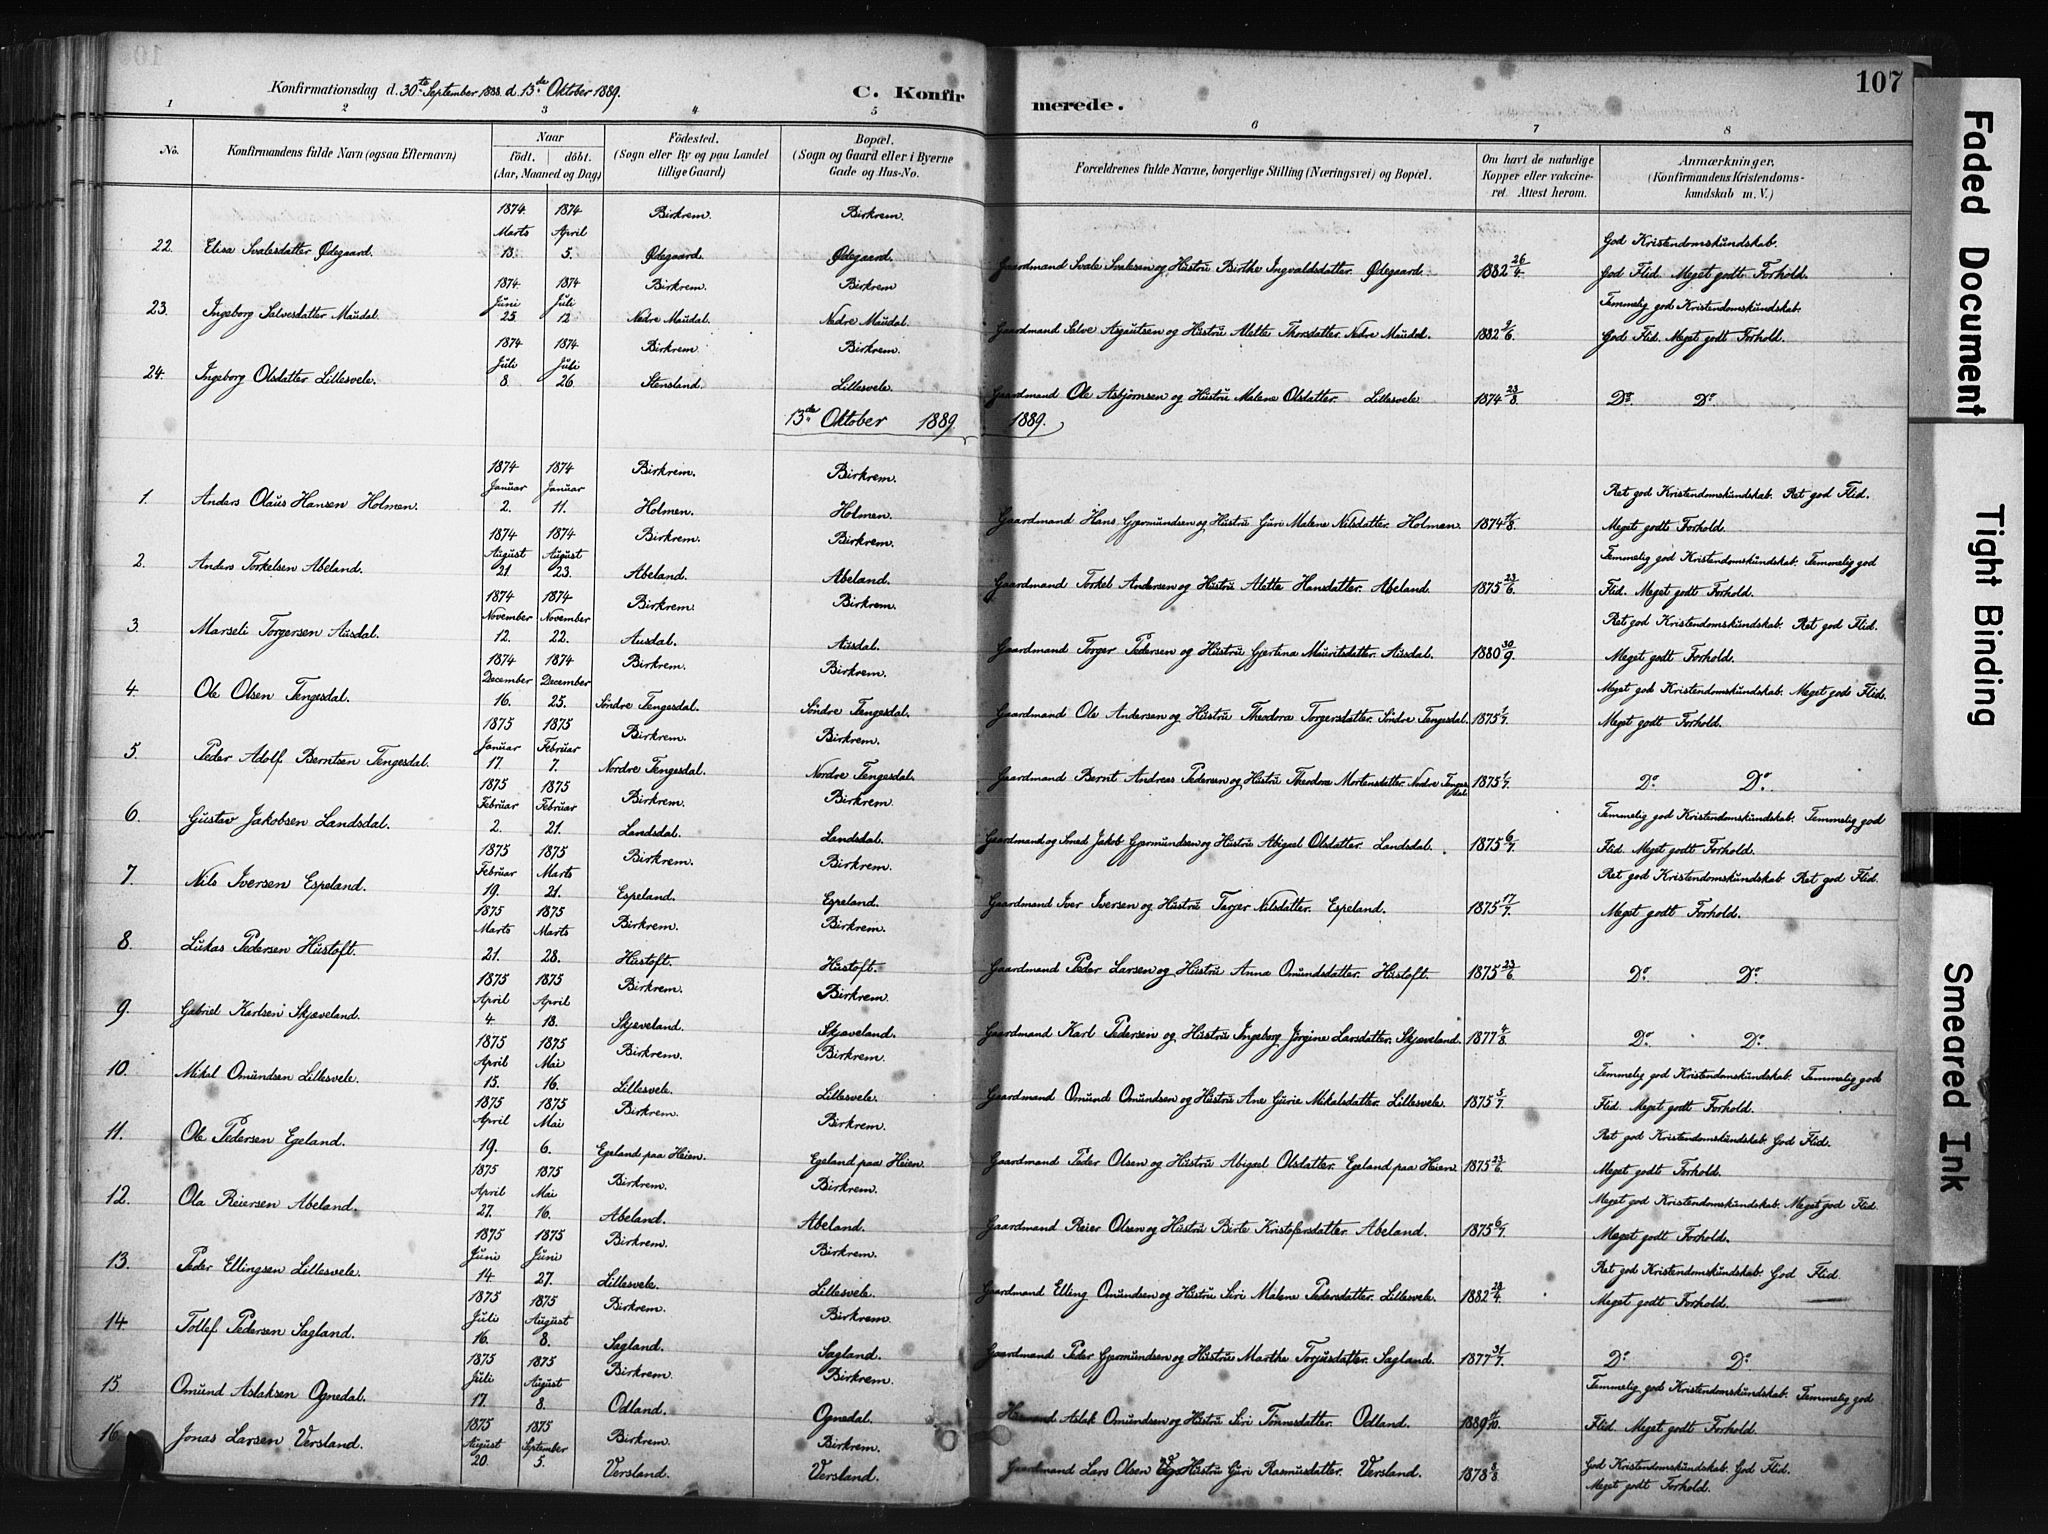 107
Konfirmationsdag d. 30te September 1888. d. 13de Oktober 1889.
C. Konfirmerede.
1 2 3 4 5 6 7 8
No. Konfirmandens fulde Navn (ogsaa Efternavn) Naar födt. döbt. (Aar, Maaned og Dag) Födested. (Sogn eller By og paa Landet tillige Gaard) Bopæl. (Sogn og Gaard eller i Byerne Gade og Hus-No. Forældrenes fulde Navne, borgerlige Stilling (Næringsvei) og Bopæl. Om havt de naturlige Kopper eller vaccineret. Attest herom. Anmærkninger. (Konfirmandens Kristendomskundskab m. V.)
1874 1874 Birkrem. Birkrem.
Marts April God Kristendomskundskab.
22. Elisa Svalesdatter Ødegaard. 13. 5. Ødegaard. Ødegaard. Gaardmand Svale Svalesen og Hustru Birthe Ingvaldsdatter. Ødegaard. 1882 26/4. God Flid. Meget godt Forhold.
1874 1874 Birkrem. Birkrem
Juni Juli Temmelig god Kristendomskundskab.
23. Ingeborg Salvesdatter Maudal. 25. 12 Nedre Maudal. Nedre Maudal. Gaardmand Salve Aspautsen og Hustru Alette Thorsdatter. Nedre Maudal. 1882 9/6. God Flid. Meget godt Forhold.
1874 1874 Birkrem. Birkrem.
Juli Juli
24. Ingeborg Olsdatter Lillesvele. 8. 26. Stensland. Lillesvele. Gaardmand Ole Asbjørnsen og Hustru Malene Olsdatter. Lillesvele 1874 23/8. Do. Do.
13de Oktober 1889. 1889.
1874 1874 Birkrem. Birkrem.
Januar Januar Ret god Kristendomskundskab. Ret god Flid.
1. Anders Olaus Hansen Holmen. 2. 11. Holmen. Holmen. Gaardmand Hans Gjermundsen og Hustru Guri Malene Nilsdatter. Holmen. 1874 /8. Meget godt Forhold.
1874 1874 Birkrem. Birkrem.
August August Temmelig god Kristendomskundskab. Temmelig god
2. Anders Torkelsen Abeland. 21. 23. Abeland. Abeland. Gaardmand Torkel Andersen og Hustru Alette Hansdatter. Abeland. 1875 23/6. Flid. Meget godt Forhold.
1874 1874 Birkrem. Birkrem.
November November Ret god Kristendomskundskab. Ret god Flid.
3. Marseli Torgersen Ausdal. 12. 22. Ausdal. Ausdal. Gaardmand Torger Pedersen og Hustru Gjertina Mauritsdatter. Ausdal. 1880 30/9. Meget godt Forhold.
1874 1874 Birkrem. Birkrem.
December December Meget god Kristendomskundskab. Meget god Flid.
4. Ole Olsen Tengesdal. 16. 25. Söndre Tengesdal. Söndre Tengesdal. Gaardmand Ole Andersen og Hustru Theodora Torgersdatter. Söndre Tengesdal. 1875 1/7. Meget godt Forhold.
1875 1875 Birkrem. Birkrem.
Januar Februar
5. Peder Adolf Berntsen Tengesdal. 17. 7. Nordre Tengesdal. Nordre Tengesdal. Gaardmand Bernt Andreas Pedersen og Hustru Theodora Mortensdatter. Nordre Tengesdal. 1875 1/7. Do Do.
1875 1875 Birkrem. Birkrem.
Februar Februar Temmelig god Kristendomskundskab. Temmelig god
6. Gustav Jakobsen Landsdal. 2. 21. Landsdal. Landsdal. Gaardmand og Smed Jakob Gjermundsen og Hustru Abigael Olsdatter. Landsdal. 1875 6/7. Flid. Meget godt Forhold.
1875 1875 Birkrem. Birkrem.
Februar Marts Ret god Kristendomskundskab. Ret god Flid.
7. Nils Iversen Espeland. 19. 21. Espeland. Espeland. Gaardmand Iver Iversen og Hustru Tager Nilsdatter. Espeland. 1875 17/7. Meget godt Forhold.
1875 1875 Birkrem. Birkrem.
Marts Marts
8. Lukas Pedersen Hustoft. 21. 28. Hustoft. Hustoft. Gaardmand Peder Larsen og Hustru Anna Omundsdatter. Hustoft. 1875 23/6. Do. Do.
1875 1875 Birkrem. Birkrem.
April April
9. Gabriel Karlsen Skjæveland. 4. 18. Skjæveland. Skjæveland. Gaardmand Karl Pedersen og Hustru Ingeborg Jørgine Larsdatter. Skjæveland. 1877 4/8. Do. Do.
1875 1875 Birkrem. Birkrem.
April Mai Temmelig god Kristendomskundskab. Temmelig god
10. Mikal Omundsen Lillesvele. 15. 16. Lillesvele. Lillesvele. Gaardmand Omund Omundsen og Hustru Ane Gurie Mikalsdatter. Lillesvele. 1875 5/7. Flid. Meget godt Forhold.
1875 1875 Birkrem. Birkrem.
April Mai Ret god Kristendomskundskab. God Flid.
11. Ole Pedersen Egeland. 19. 6. Egeland paa Heien. Egeland paa Heien. Gaardmand Peder Olsen og Hustru Abigael Olsdatter. Egeland paa Heien. 1875 23/6. Meget godt Forhold.
1875 1875 Birkrem. Birkrem.
April Mai Meget god Kristendomskundskab. Meget god Flid.
12. Ola Reiersen Abeland. 27. 16. Abeland. Abeland. Gaardmand Reier Olsen og Hustru Birte Kristofersdatter. Abeland. 1875 6/7. Meget godt Forhold.
1875 1875 Birkrem. Birkrem.
Juni Juni Ret god Kristendomskundskab. God Flid.
13. Peder Ellingsen Lillesvele. 14. 27. Lillesvele. Lillesvele. Gaardmand Elling Omundsen og Hustru Siri Malene Pedersdatter. Lillesvele. 1882 28/4. Meget godt Forhold.
1875 1875 Birkrem. Birkrem.
Juli August
14. Tollef Pedersen Sagland. 16. 8. Sagland. Sagland. Gaardmand Peder Gjermundsen og Hustru Marthe Torjusdatter. Sagland. 1877 31/7. Do. Do
1875 1875 Birkrem. Birkrem.
Juli August Temmelig god Kristendomskundskab. Temmelig god
15. Omund Aslaksen Ognedal. 17. 8. Odland. Ognedal. Aslak Omundsen og Hustru Siri Tönnesdatter. Odland. 1889 /10. Flid. Meget godt Forhold.
1875 1875 Birkrem. Birkrem.
August September God Kristendomskundskab. God Flid.
16. Jonas Larsen Versland. 20. 5. Versland. Versland. Gaardmand Lars Olsen og Hustru Guri Rasmusdatter. Versland. 1878 8/8. Meget godt Forhold.
Faded Document
Tight Binding
Smeared Ink